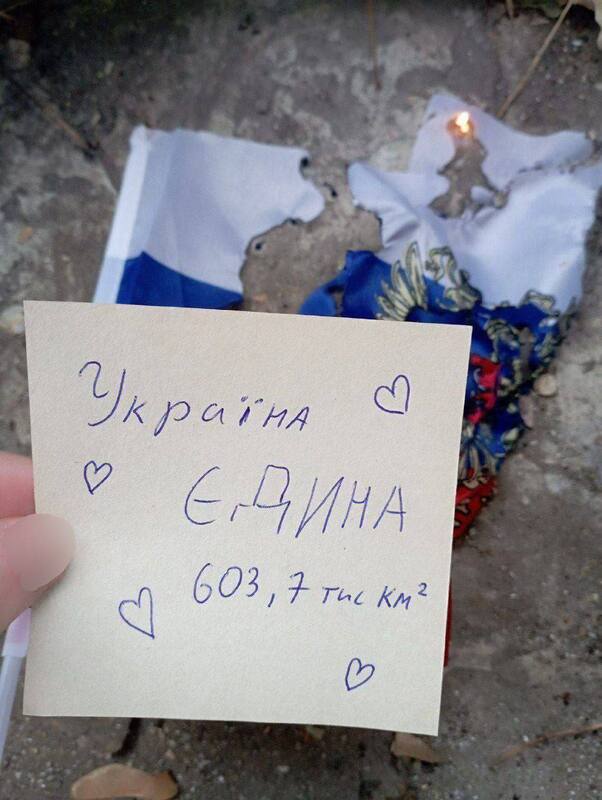 Україна
ЄДИНА
603,7 тис км²